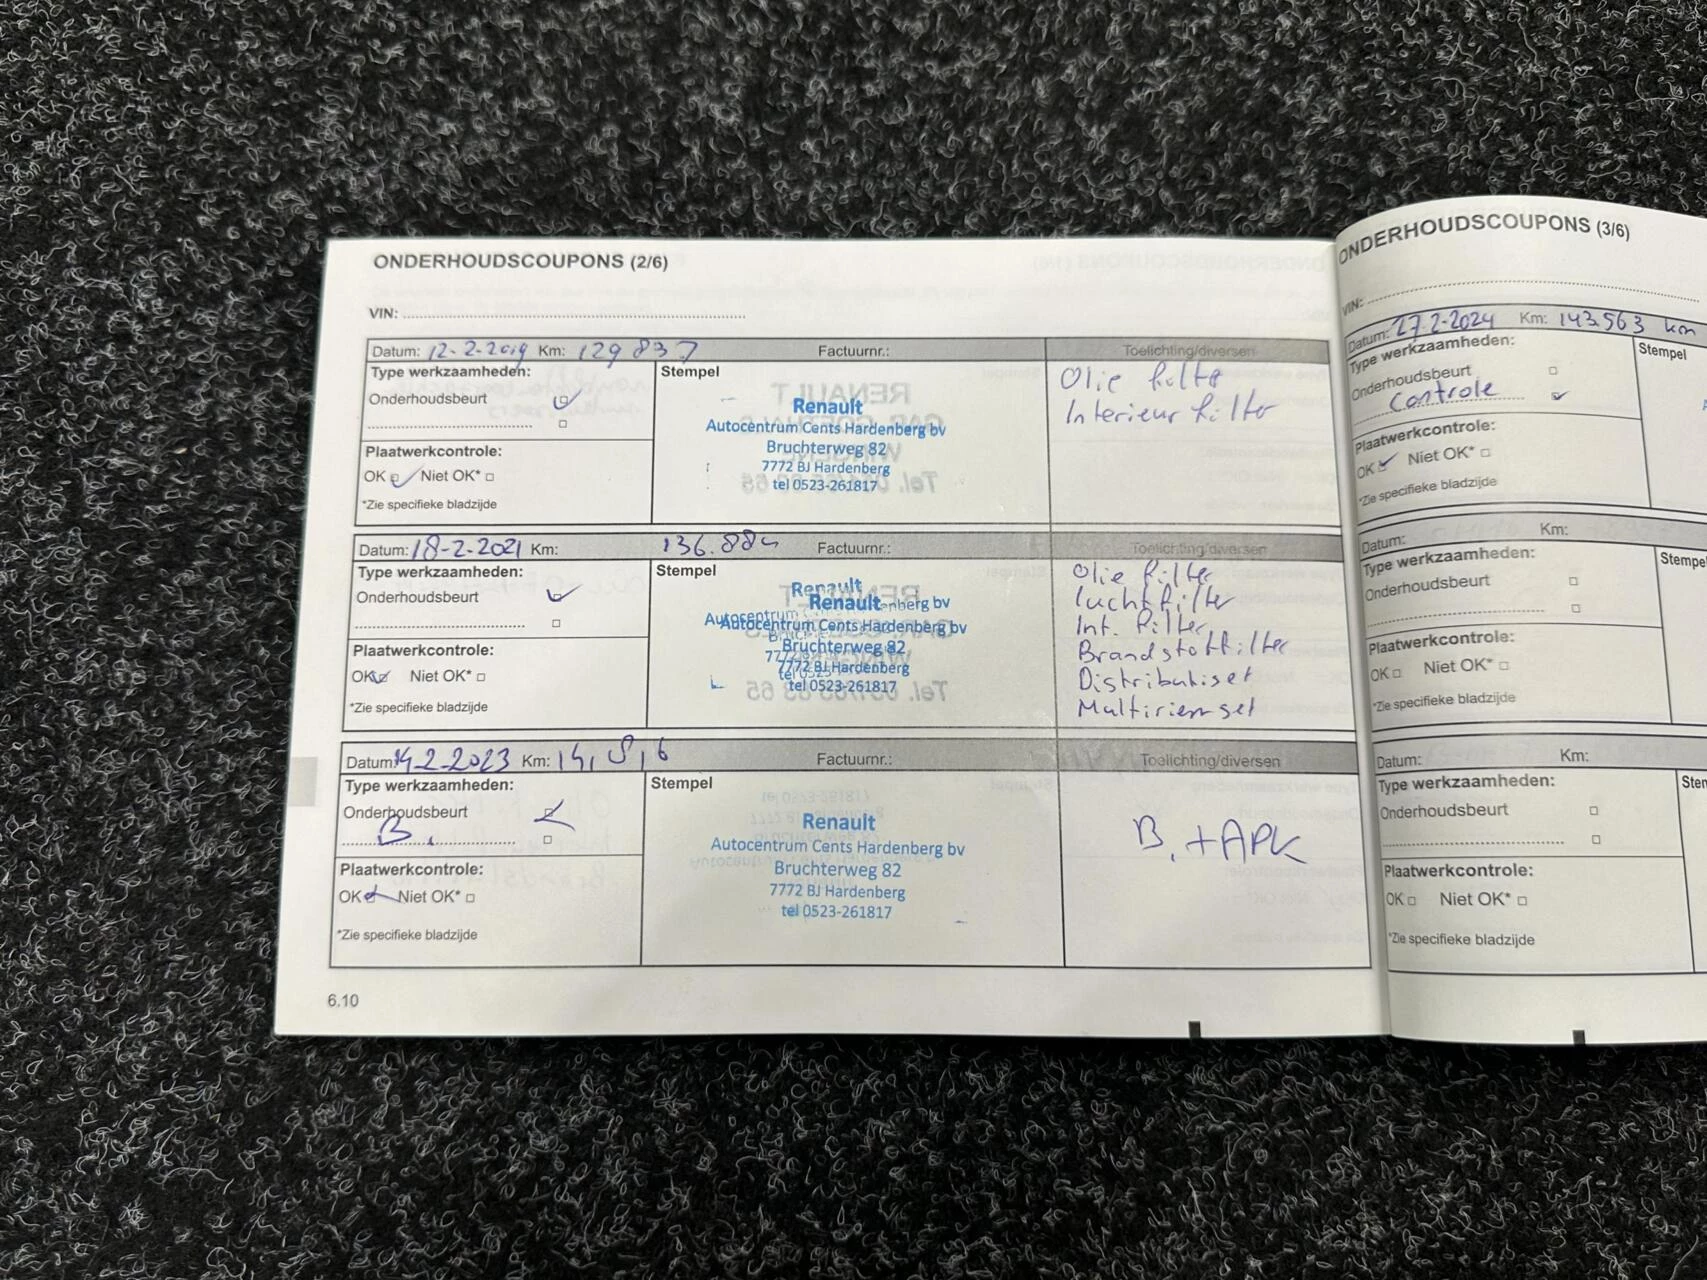 ONDERHOUDSCOUPONS (2/6)
VIN:
Datum: 12-2-2019 Km: 129 837 Factuurnr.: Toelichting/diversen
Type werkzaamheden:
Onderhoudsbeurt
Plaatwerkcontrole:
OK Niet OK*
*Zie specifieke bladzijde
Stempel
Renault
Autocentrum Cents Hardenberg bv
Bruchterweg 82
7772 BJ Hardenberg
tel 0523-261817
Olie filter
Interieur filter
Datum: 18-2-2021 Km: 136.884 Factuurnr.: Toelichting/diversen
Type werkzaamheden:
Onderhoudsbeurt
Plaatwerkcontrole:
OK Niet OK*
*Zie specifieke bladzijde
Stempel
Renault
Autocentrum Cents Hardenberg bv
Bruchterweg 82
7772 BJ Hardenberg
tel 0523-261817
Olie filter
luchtfilter
Int. filter
Brandstoffilter
Distributieset
Multiriem set
Datum: 14-2-2023 Km: Factuurnr.: Toelichting/diversen
Type werkzaamheden:
Onderhoudsbeurt
B.
Plaatwerkcontrole:
OK Niet OK*
*Zie specifieke bladzijde
Stempel
Renault
Autocentrum Cents Hardenberg bv
Bruchterweg 82
7772 BJ Hardenberg
tel 0523-261817
B. + APK
6.10
ONDERHOUDSCOUPONS (3/6)
VIN:
Datum: 27-2-2024 Km: 143.563 km
Type werkzaamheden:
Onderhoudsbeurt
Controle
Plaatwerkcontrole:
OK Niet OK*
*Zie specifieke bladzijde
Stempel
Datum: Km:
Type werkzaamheden:
Onderhoudsbeurt
Plaatwerkcontrole:
OK Niet OK*
*Zie specifieke bladzijde
Stempe
Datum: Km:
Type werkzaamheden:
Onderhoudsbeurt
Plaatwerkcontrole:
OK Niet OK*
*Zie specifieke bladzijde
Sten